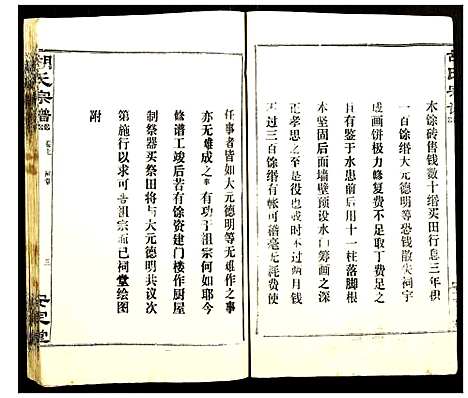 木馀砖售钱数十缗买田行息三年积
一百馀缗大元德明等恐钱散失祠宇
成画饼极力修复费不足取丁费足之
且有鉴于水患前后用十一柱落脚根
本坚固后面墙壁预设水门筹画之深
正孝思之至意或时不过两月钱
不过三百馀缗帐有可稽毫无耗费使
任事者皆如大元德明等无难作之事
亦无难成之事有功于祖宗何如耶今
修谱工竣后若有馀资建门楼作厨屋
制祭器买祭田将与大元德明共议次
第施行以求可告祖宗而已祠堂绘图
附
胡氏宗谱
三
安定堂